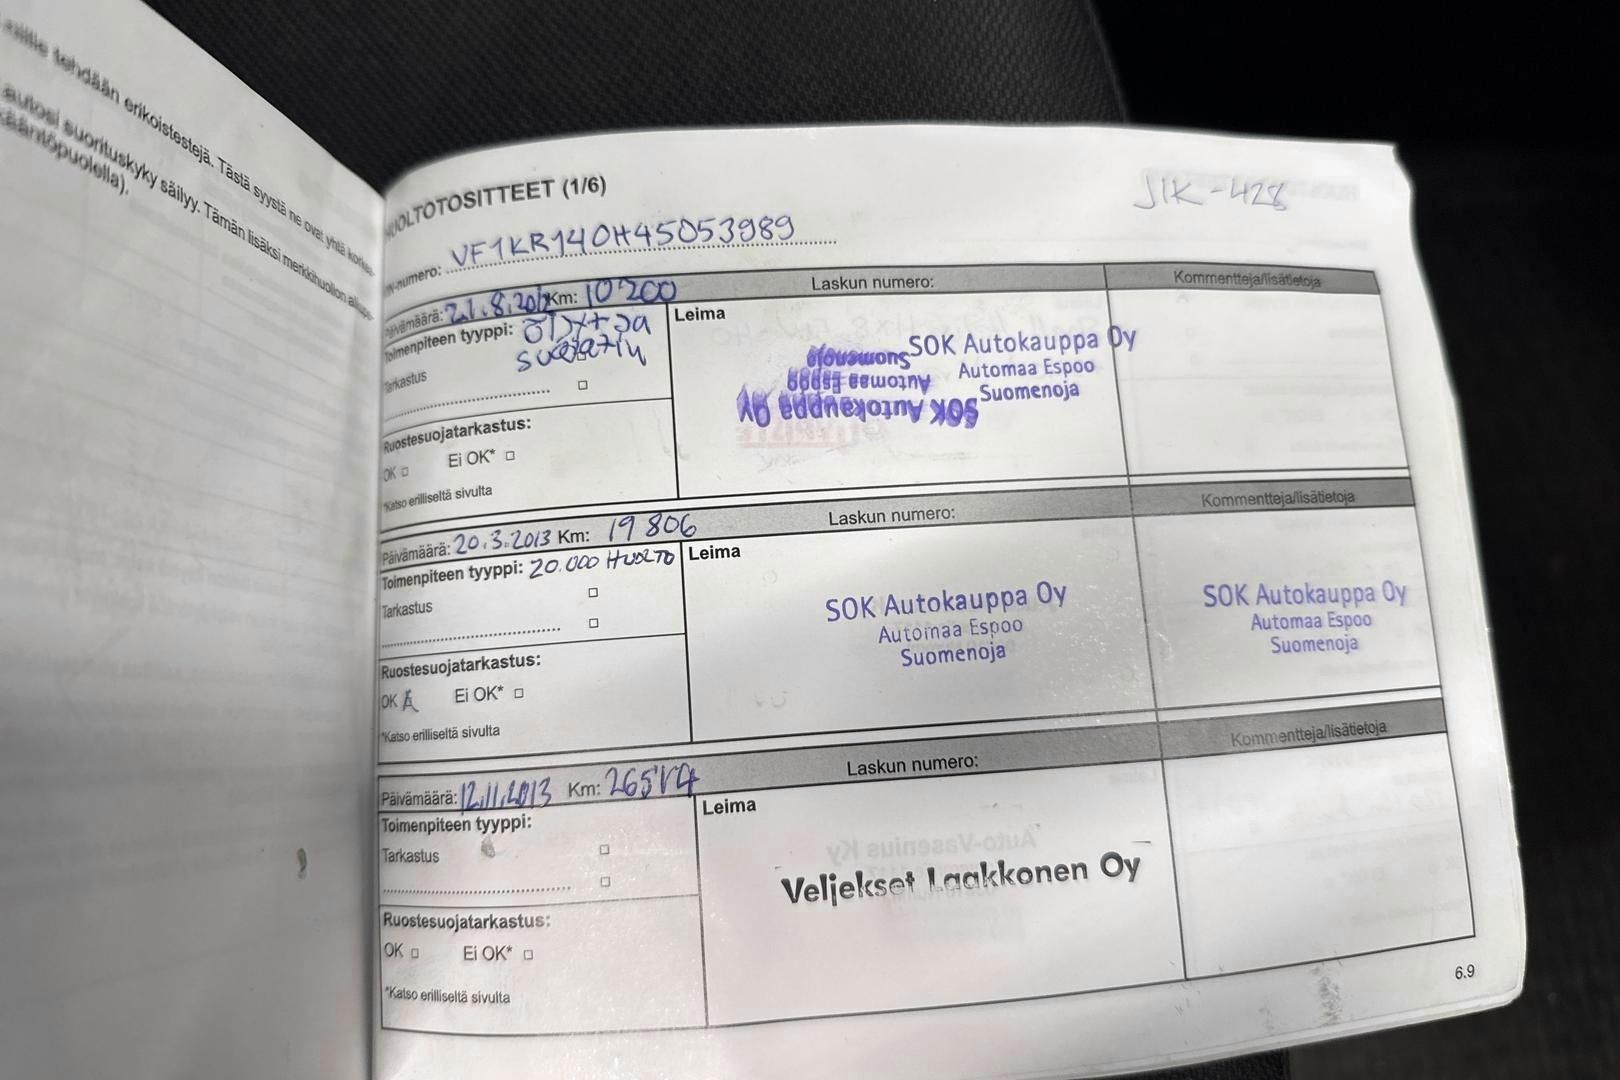 niille tehdään erikoistestejä. Tästä syystä ne ovat yhtä
autosi suorituskyky säilyy. Tämän lisäksi merkkihuollon
kääntöpuolella).
HUOLTOTOSITTEET (1/6)
JIK-428
VIN-numero: VF1KR140H45053989
Päivämäärä: 21.8.2012 Km: 10 200
Laskun numero:
Kommentteja/lisätietoja
Toimenpiteen tyyppi: öljyt ja
Tarkastus
Leima
SOK Autokauppa Oy
Automaa Espoo
Suomenoja
SOK Autokauppa Oy
Automaa Espoo
Suomenoja
Ruostesuojatarkastus:
OK Ei OK*
*Katso erilliseltä sivulta
Päivämäärä: 20.3.2013 Km: 19 806
Laskun numero:
Kommentteja/lisätietoja
Toimenpiteen tyyppi: 20.000 HUOLTO
Tarkastus
Leima
SOK Autokauppa Oy
Automaa Espoo
Suomenoja
SOK Autokauppa Oy
Automaa Espoo
Suomenoja
Ruostesuojatarkastus:
OK Ei OK*
*Katso erilliseltä sivulta
Päivämäärä: 12.11.2013 Km:
Laskun numero:
Kommentteja/lisätietoja
Toimenpiteen tyyppi:
Tarkastus
Leima
Veljekset Laakkonen Oy
Ruostesuojatarkastus:
OK Ei OK*
*Katso erilliseltä sivulta
6.9